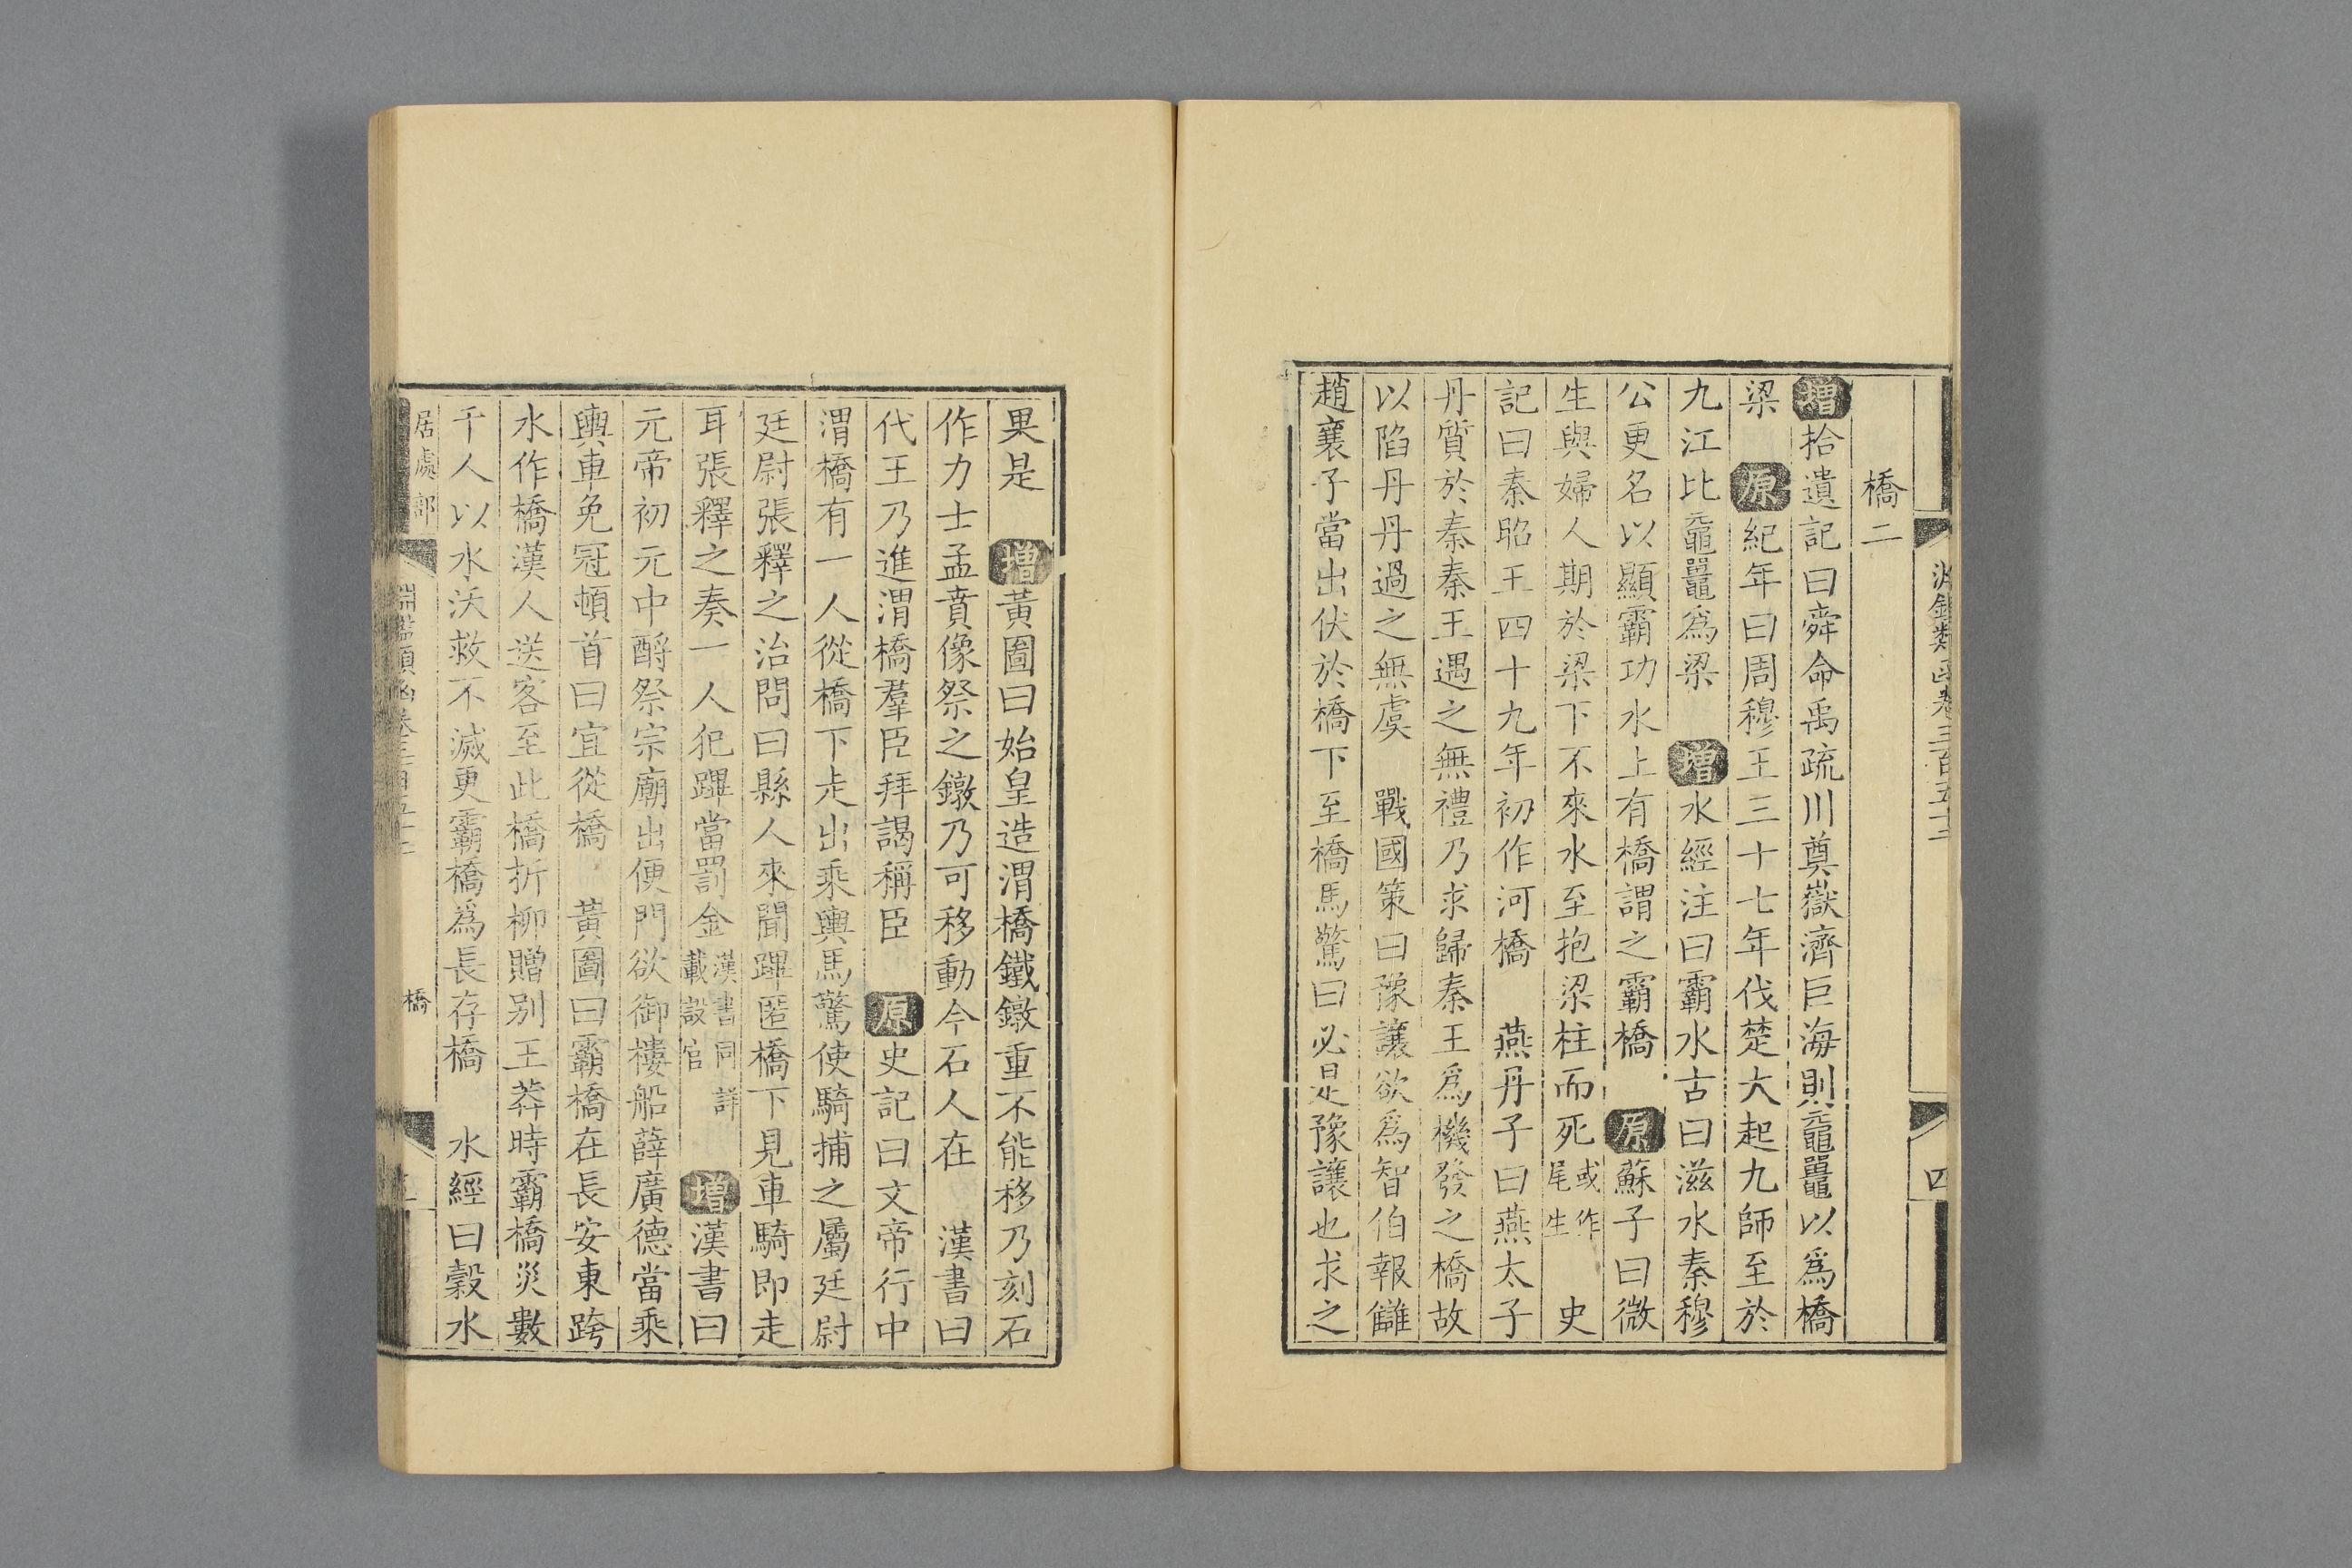 橋二
增拾遺記曰舜命禹疏川奠嶽濟巨海則黿鼉以爲橋
梁　原紀年曰周穆王三十七年伐楚大起九師至於
九江比黿鼉爲梁　增水經注曰霸水古曰滋水秦穆
公更名以顯霸功水上有橋謂之霸橋　原蘇子曰微
生與婦人期於梁下不來水至抱梁柱而死或作尾生　史
記曰秦昭王四十九年初作河橋　燕丹子曰燕太子
丹質於秦秦王遇之無禮乃求歸秦王爲機發之橋故
以陷丹丹過之無虞　戰國策曰豫讓欲爲智伯報讎
趙襄子當出伏於橋下至橋馬驚曰必是豫讓也求之
果是　增黃圖曰始皇造渭橋鐵鐓重不能移乃刻石
作力士孟賁像祭之鐓乃可移動今石人在　漢書曰
代王乃進渭橋羣臣拜謁稱臣　原史記曰文帝行中
渭橋有一人從橋下走出乘輿馬驚使騎捕之屬廷尉
廷尉張釋之治問曰縣人來聞蹕匿橋下見車騎即走
耳張釋之奏一人犯蹕當罰金漢書同詳載設官　增漢書曰
元帝初元中酹祭宗廟出便門欲御樓船薛廣德當乘
輿車免冠頓首曰宜從橋　黃圖曰霸橋在長安東跨
水作橋漢人送客至此橋折柳贈別王莽時霸橋災數
千人以水沃救不滅更霸橋爲長存橋　水經曰穀水
居處部
淵鑑類函卷三百五十
橋
四